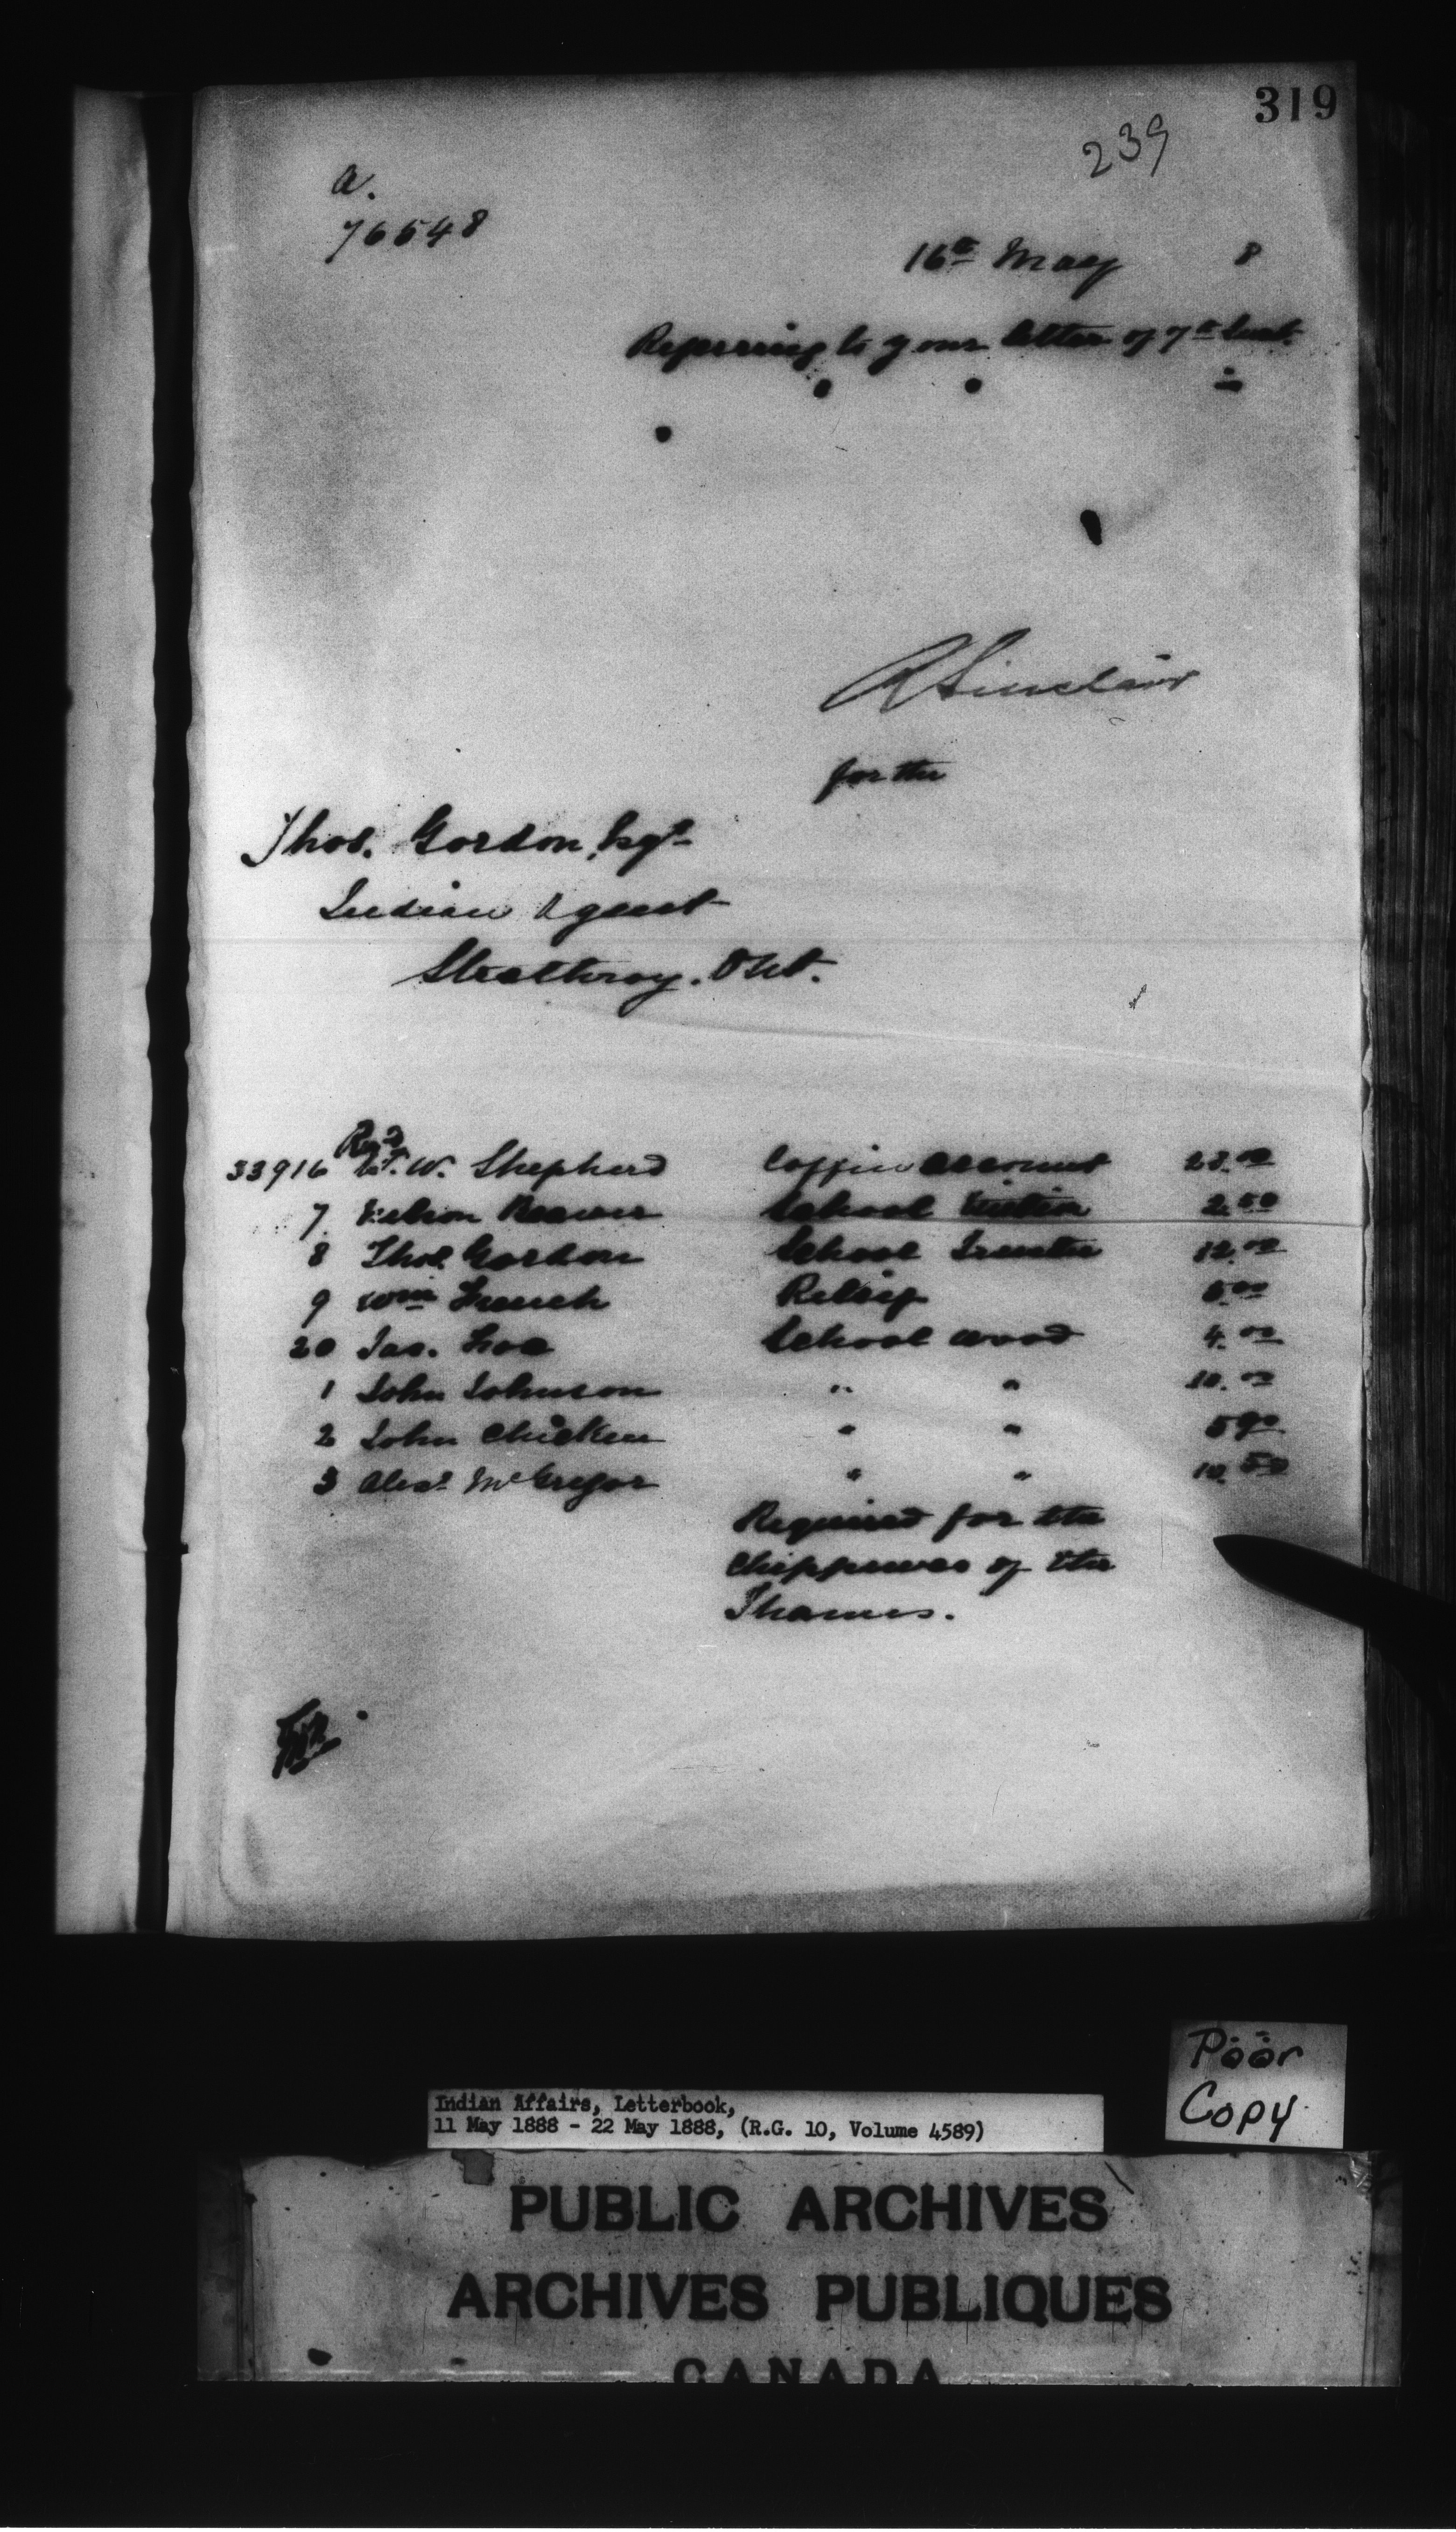 319
239
a.
76548
16th May 8
Referring to your letter of 7th Inst.
R Sinclair
for the
Thos. Gordon, Esqr
Indian Agent
Strathroy. Ont.
Revd
33916 W. W. Shepherd Coffin account 28.00
7 Nelson Beaver School 2.50
8 Thos. Gordon School Trustee 12.00
9 Wm French Relief 5.00
20 Jas. Fox School wood 4.00
1 John Johnson " " 10.00
2 John Chicken " " 5 90
3 Alexr McGregor " " 10.50
Required for the
Chippewas of the
Thames.
Poor
Copy
Indian Affairs, Letterbook,
11 May 1888 - 22 May 1888, (R.G. 10, Volume 4589)
PUBLIC ARCHIVES
ARCHIVES PUBLIQUES
CANADA